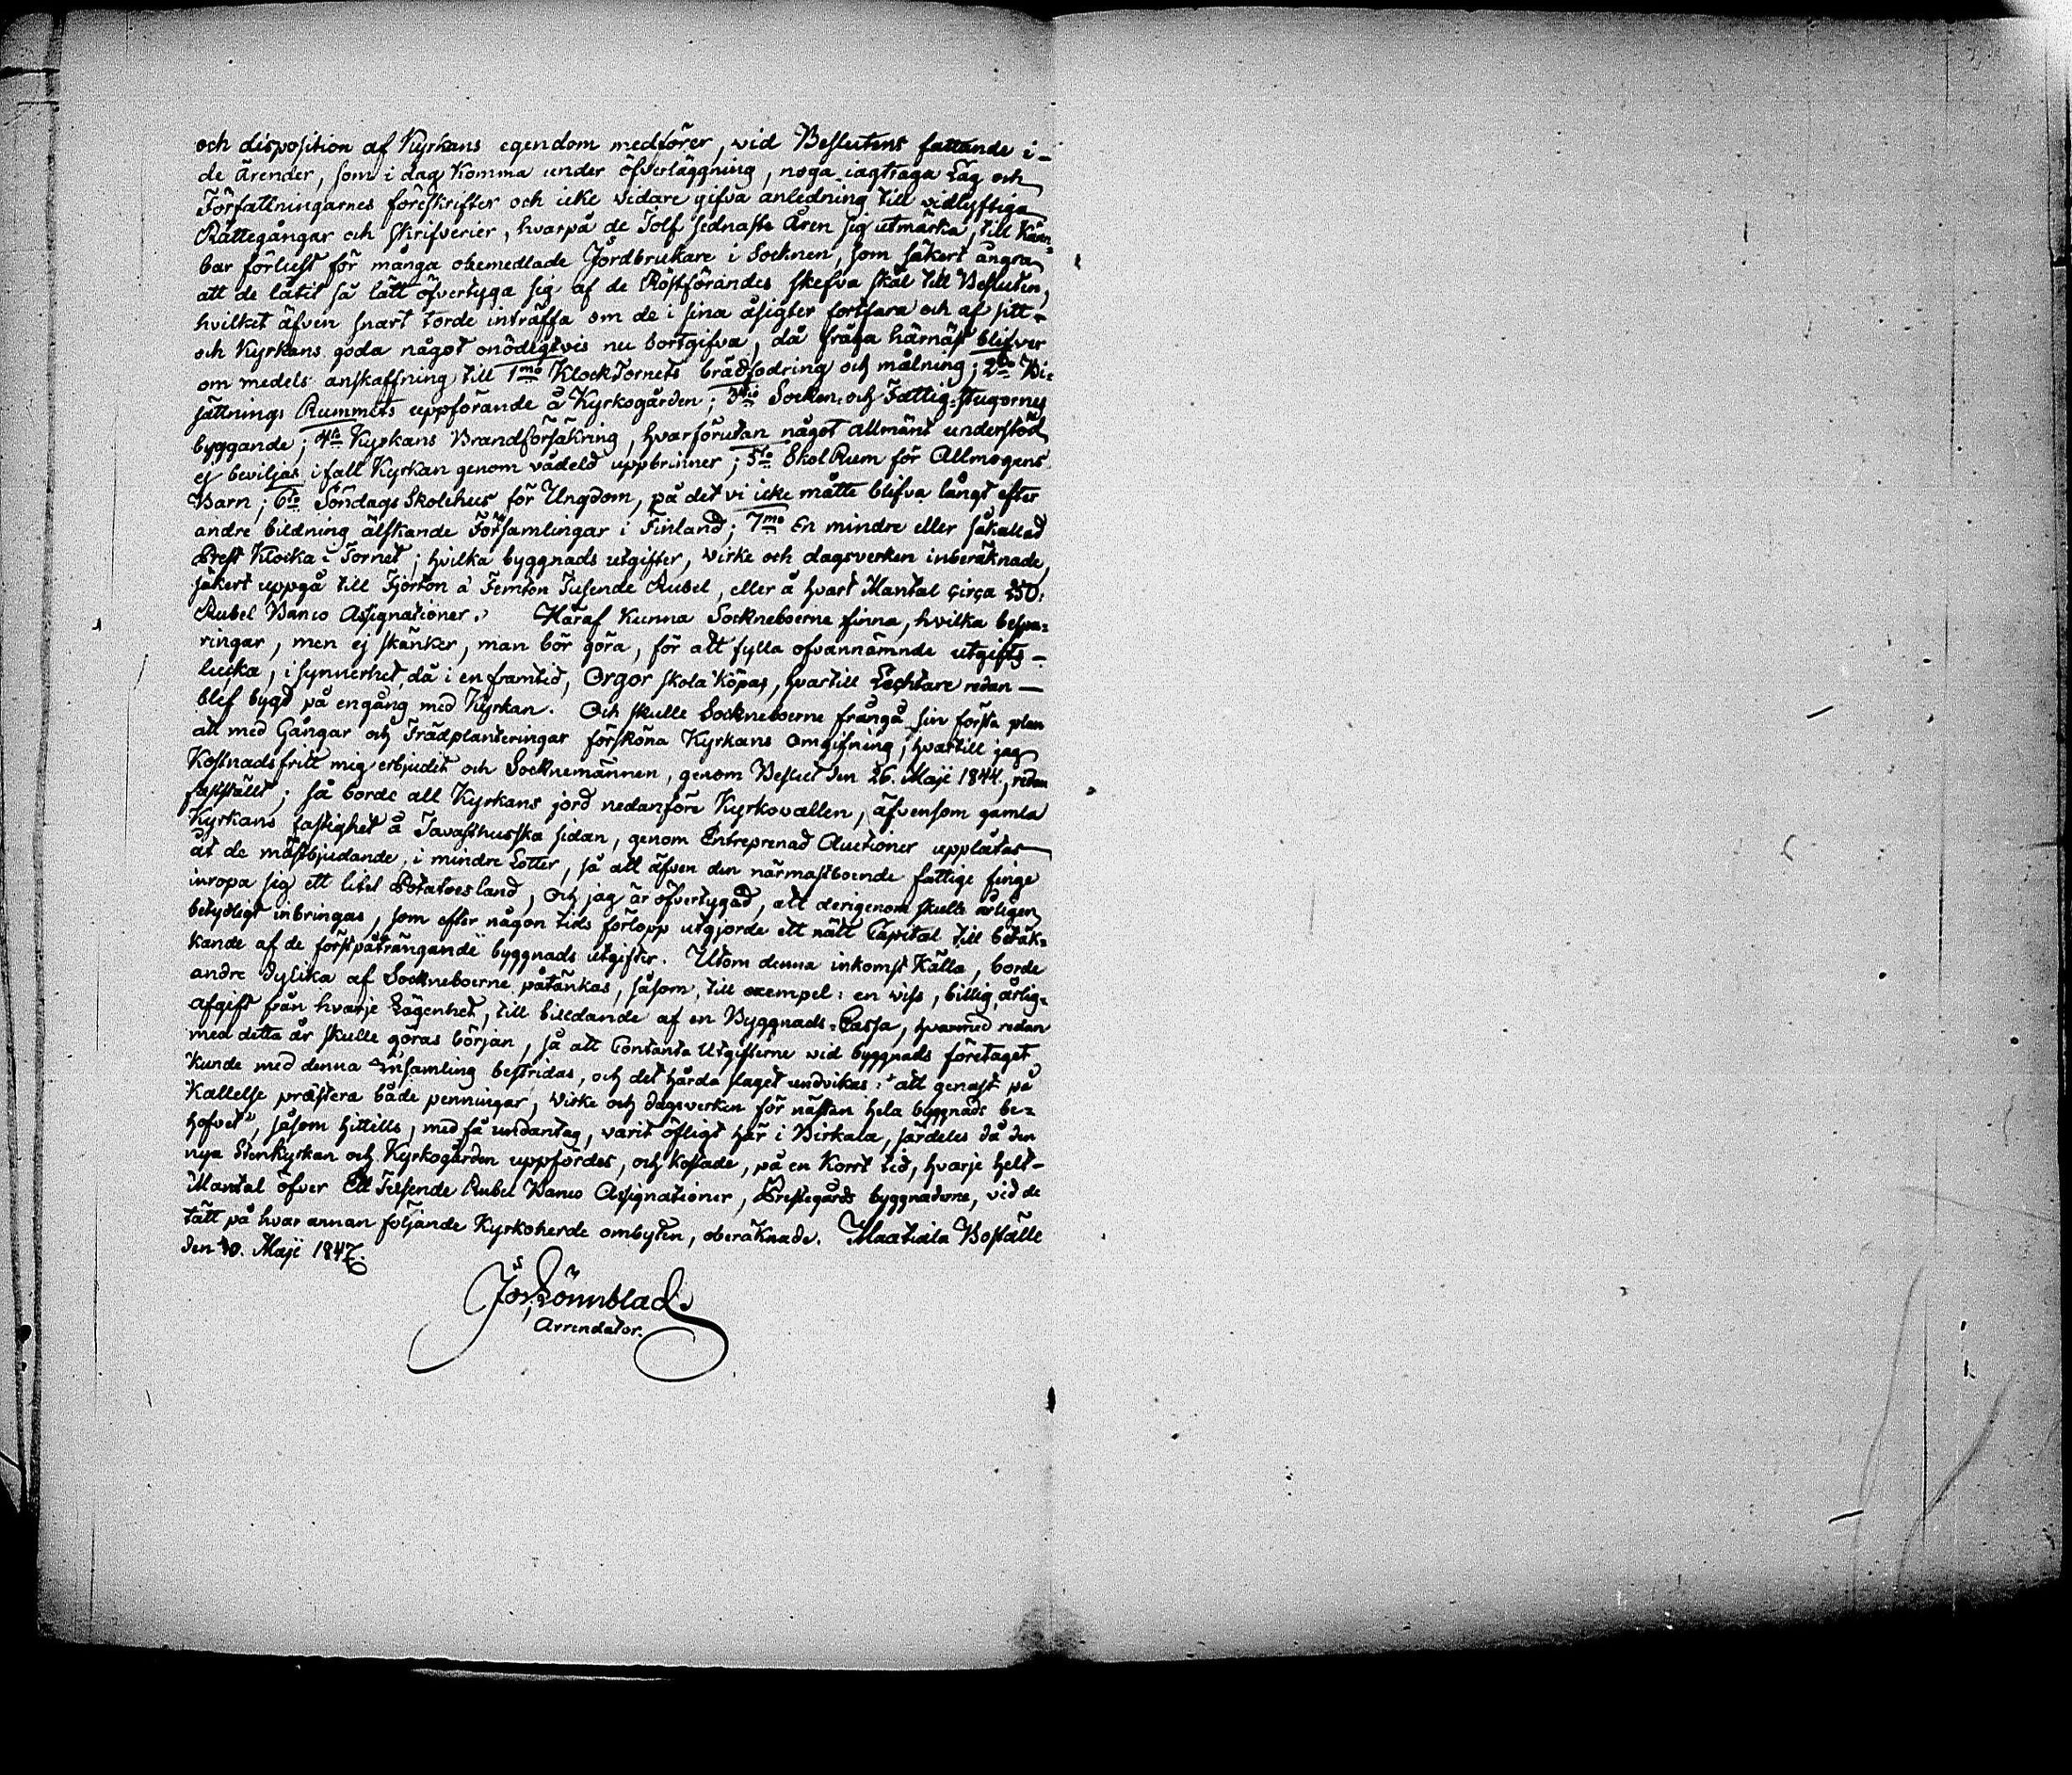 och disposition af Kyrkans egendom medförer, vid Beslutens fattande i-
de Ärender, som i dag komma under öfverläggning, noga iagttaga Lag och
Författningarnes föreskrifter och icke vidare gifva anledning till vidlyftiga
Rättegångar och skrifverier, hvarpå de Tolf sednaste Åren sig utmärka, till känn-
bar förlust för många obemedlade Jordbrukare i Socknen, som säkert ångra
att de låtit så lätt öfvertyga sig af de Röstförandes skefva skäl till Besluten,
hvilket äfven snart torde inträffa om de i sina åsigter fortfara och af sitt-
och Kyrkans goda något onödigtvis nu bortgifva, då fråga härnäst blifver
om medels anskaffning till 1mo KlockTornets brädfodring och målning; 2do Bi-
sättnings Rummets uppförande å Kyrkogården; 3tio Socken- och Fattig-stugornes
byggande; 4to Kyrkans Brandförsäkring, hvarförutan något allmänt understöd
ej beviljas ifall Kyrkan genom vådeld uppbrinner; 5to SkolRum för Allmogens
Barn; 6to SöndagsSkolehus för Ungdom, på det vi icke måtte blifva långt efter
andre bildning älskande Församlingar i Finland; 7mo En mindre eller såkallad
Prest Klocka i Tornet; hvilka byggnads utgifter, virke och dagsverken inberäknade,
säkert uppgå till Fjorton à Femton Tusende Rubel, eller å hvart Mantal cirça 250:
Rubel Banco Assignationer. Häraf kunna Sockneboerne finna, hvilka bespa-
ringar, men ej skänker, man bör göra, för att fylla ofvannämnde utgifts-
lucka, i synnerhet, då i en framtid, Orgor skola köpas, hvartill Lechtare redan —
blef bygd på engång med Kyrkan. Och skulle Sockneboerne frångå sin första plan
att med Gångar och Trädplanteringar försköna Kyrkans Omgifning, hvartill jag
Kostnadsfritt mig erbjudit och Socknemännen, genom Beslut den 26. Maji 1844, redan
fastställt; så borde all Kyrkans jord nedanföre Kyrkovallen, äfvensom gamla
Kyrkans fastighet å Tavasthusska sidan, genom Entreprenad Auctioner upplåtas
åt de mästbjudande, i mindre Lotter, så att äfven den närmastboende fattige finge
inropa sig ett litet Potatoesland, Och jag är öfvertygad, att derigenom skulle årligen
betydligt inbringas, som efter någon tids förlopp utgjorde ett nätt Capital till betäk-
kande af de förstpåträngande byggnads utgifter. Utom denna inkomst Källa, borde
andre dylika af Sockneboerne påtänkas, såsom, till exempel: en viss, billig, årlig-
afgift från hvarje Lägenhet, till bildande af en Byggnads-Cassa, hvarmed redan
med detta år skulle göras början, så att Contanta Utgifterne vid byggnads företaget
kunde med denna Insamling bestridas, och det hårda slaget undvikas: "att genast på
Kallelse præstera både penningar, Virke och dagsverken för nästan hela byggnads be-
hofvet", såsom hittills, med få undantag, varit öfligt här i Birkala, särdeles då den
nya Stenkyrkan och Kyrkogården uppfördes, och kostade, på en kort tid, hvarje helt-
Mantal öfver Ett Tusende Rubel Banco Assignationer, Prestegårds byggnaderne, vid de
tätt på hvar annan följande Kyrkoherde ombyten, oberäknade. Maatiala Boställe
den 10. Maji 1847.
Lönnblad
Arrendator.